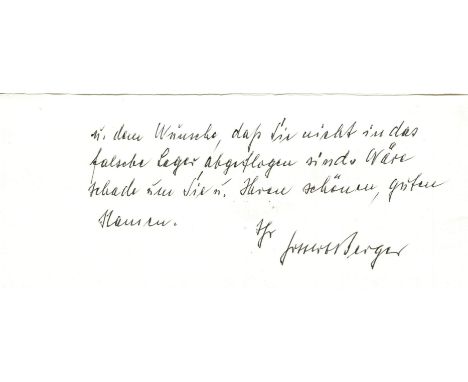 u. dem Wunsche, daß Sie nicht in das
falsche Lager abgeflogen sind. Wäre
schade um Sie u. Ihren schönen, guten
Namen.
Ihr
Berger